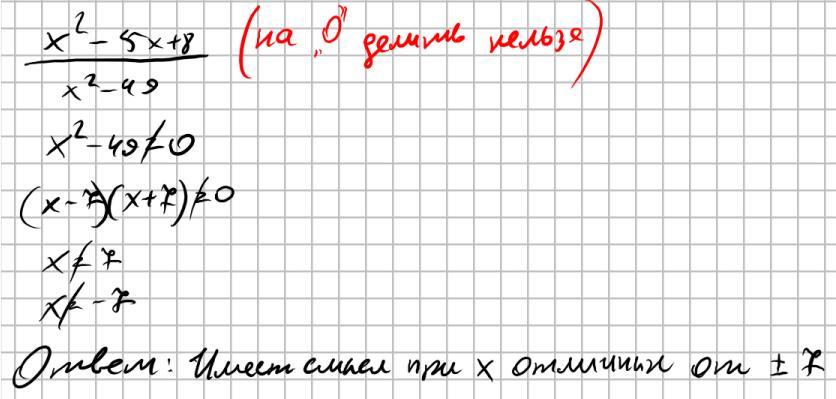 x² - 5x+8 (на „0” делить нельзя)
x² - 49
x² - 49 ≠ 0
(x - 7)(x + 7) ≠ 0
x ≠ 7
x ≠ - 7
Ответ: Имеет смысл при x отличных от ± 7